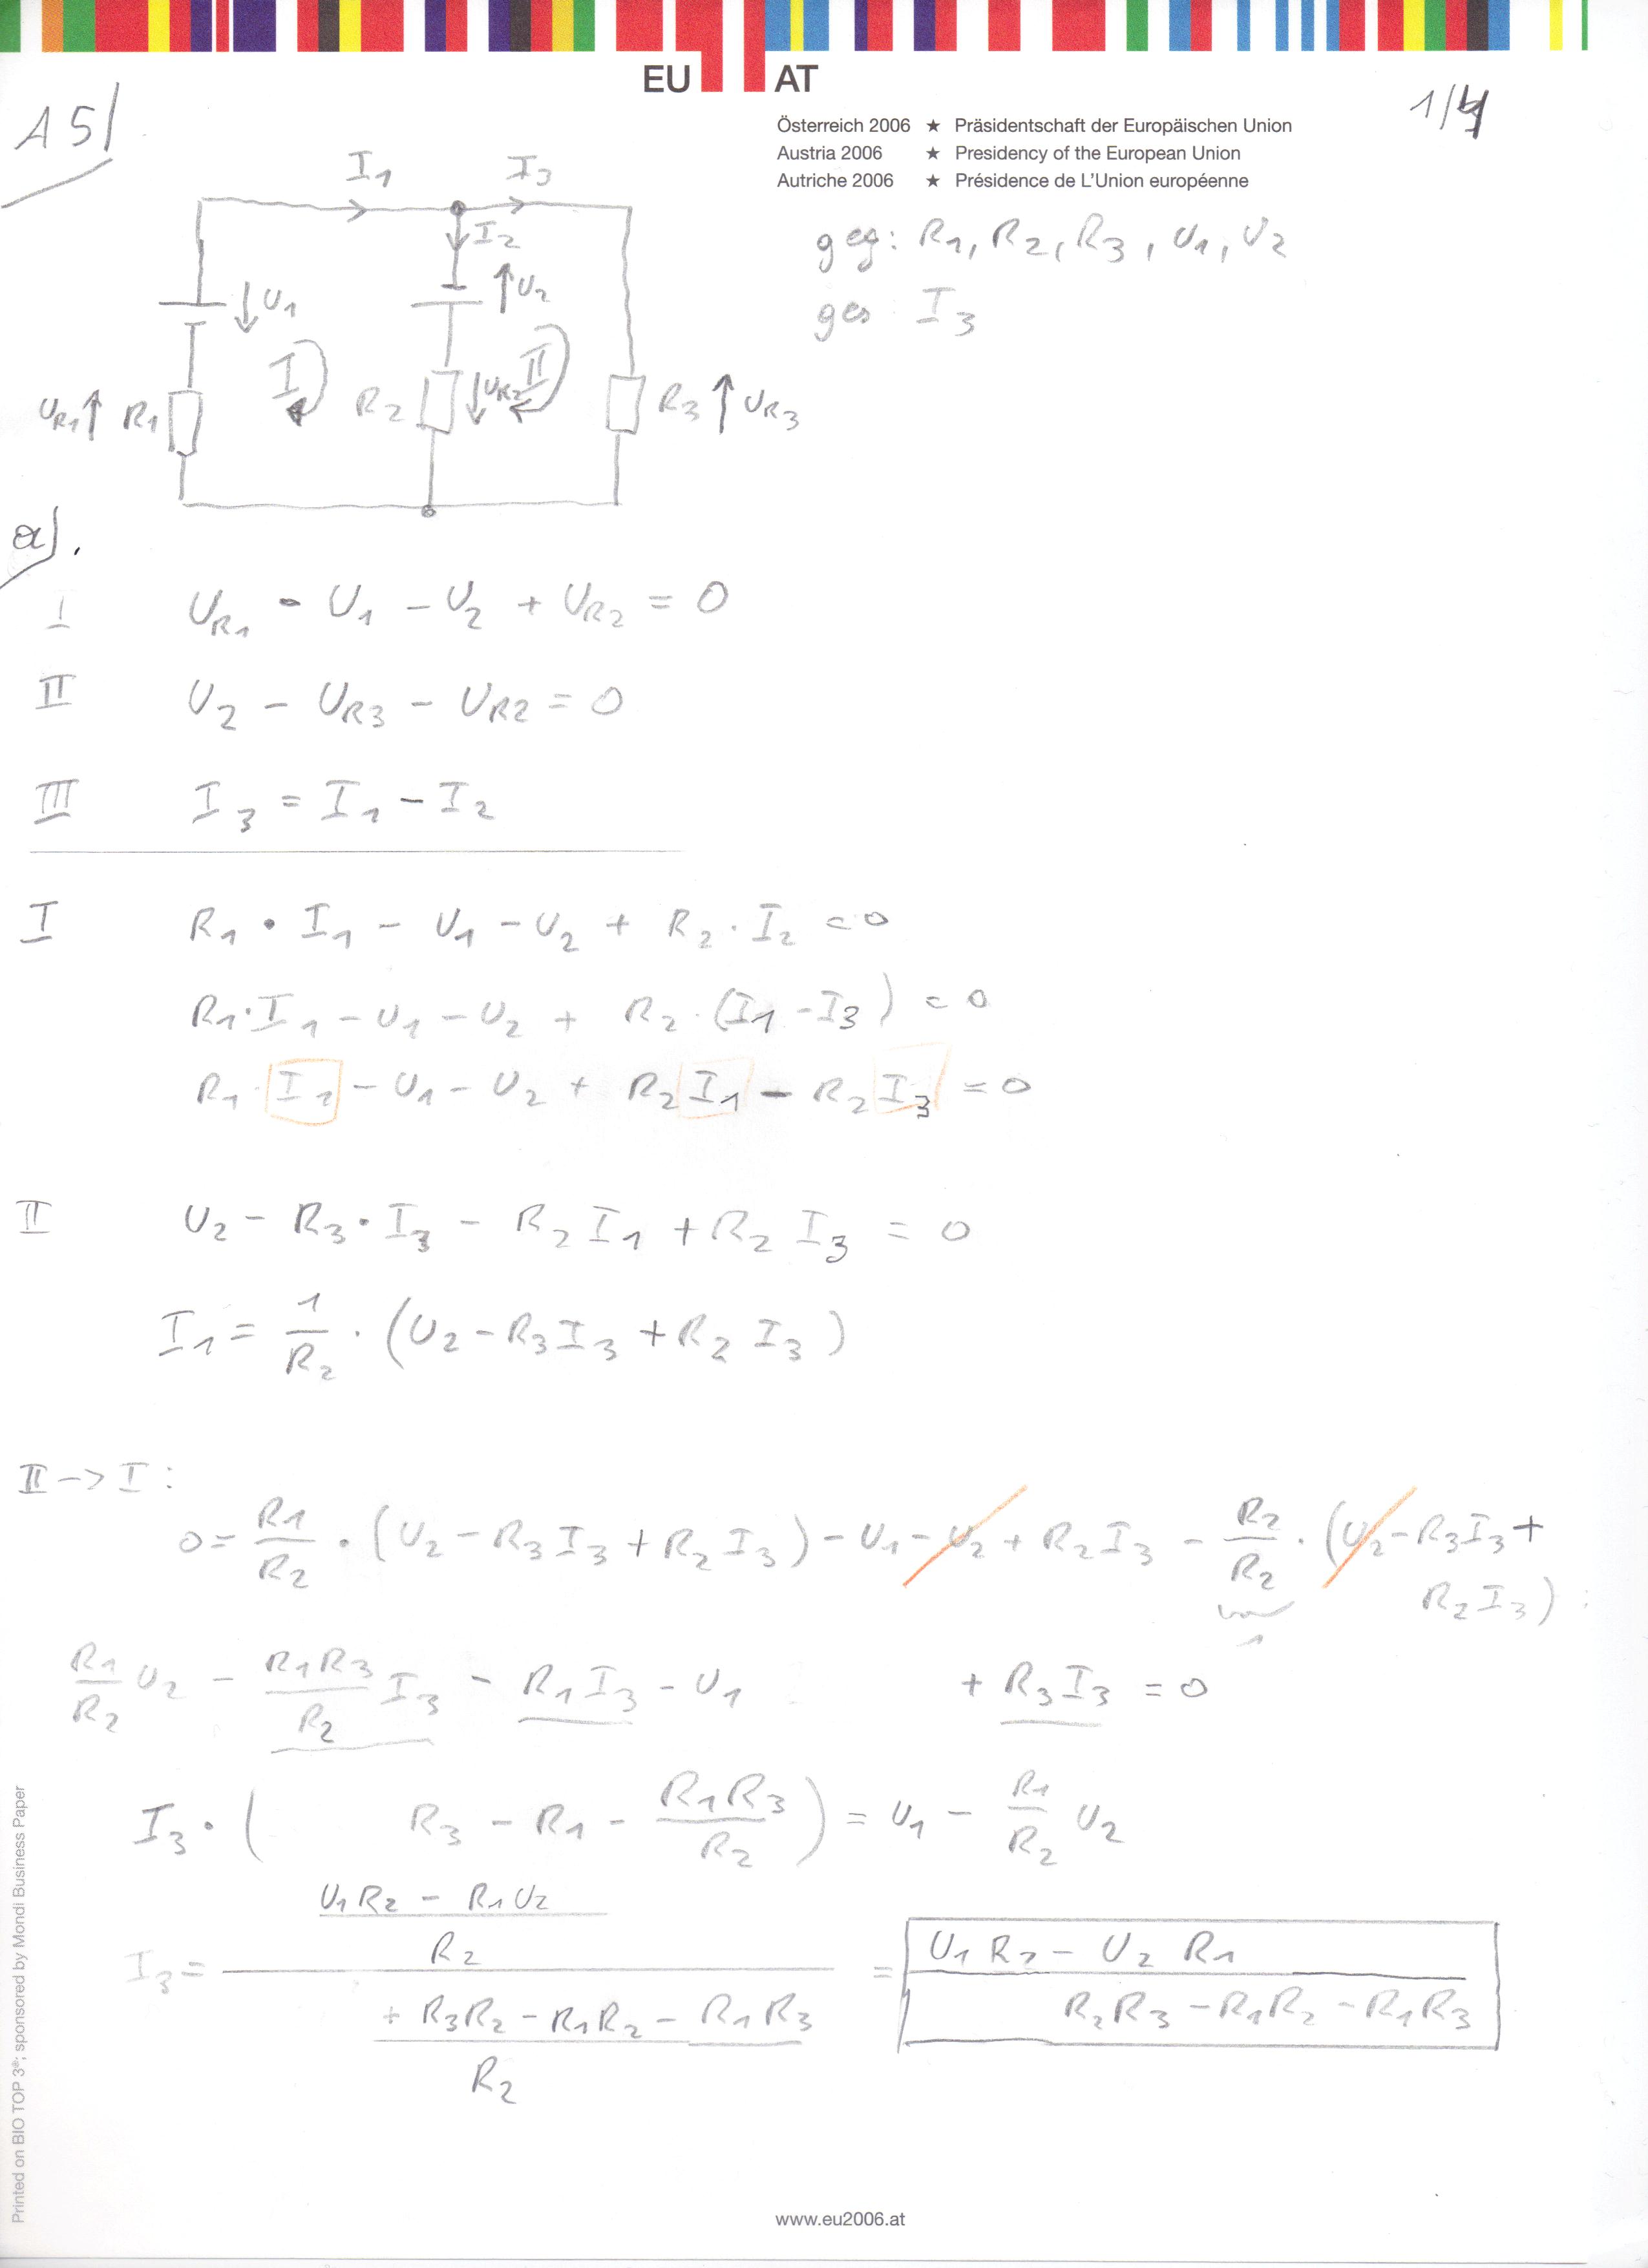 EU AT
A5)
1/4
Österreich 2006 ★ Präsidentschaft der Europäischen Union
Austria 2006 ★ Presidency of the European Union
Autriche 2006 ★ Présidence de L'Union européenne
I1 I3
I2
geg: R1, R2, R3, U1, U2
ges: I3
U1 U2
I II
UR1 R1 R2 UR2 R3 UR3
a).
I UR1 - U1 - U2 + UR2 = 0
II U2 - UR3 - UR2 = 0
III I3 = I1 - I2
I R1 · I1 - U1 - U2 + R2 · I2 = 0
R1 · I1 - U1 - U2 + R2 · (I1 - I3) = 0
R1 · I1 - U1 - U2 + R2 I1 - R2 I3 = 0
II U2 - R3 · I3 - R2 I1 + R2 I3 = 0
I1 = 1/R2 · (U2 - R3 I3 + R2 I3)
II -> I:
0 = R1/R2 · (U2 - R3 I3 + R2 I3) - U1 - U2 + R2 I3 - R2/R2 · (U2 - R3 I3 +
R2 I3)
1
R1/R2 U2 - R1R3/R2 I3 - R1 I3 - U1 + R3 I3 = 0
I3 · ( R3 - R1 - R1R3/R2 ) = U1 - R1/R2 U2
U1 R2 - R1 U2
R2
I3 = = U1 R2 - U2 R1
+ R3R2 - R1R2 - R1R3 R2R3 - R1R2 - R1R3
R2
www.eu2006.at
Printed on BIO TOP 3®; sponsored by Mondi Business Paper